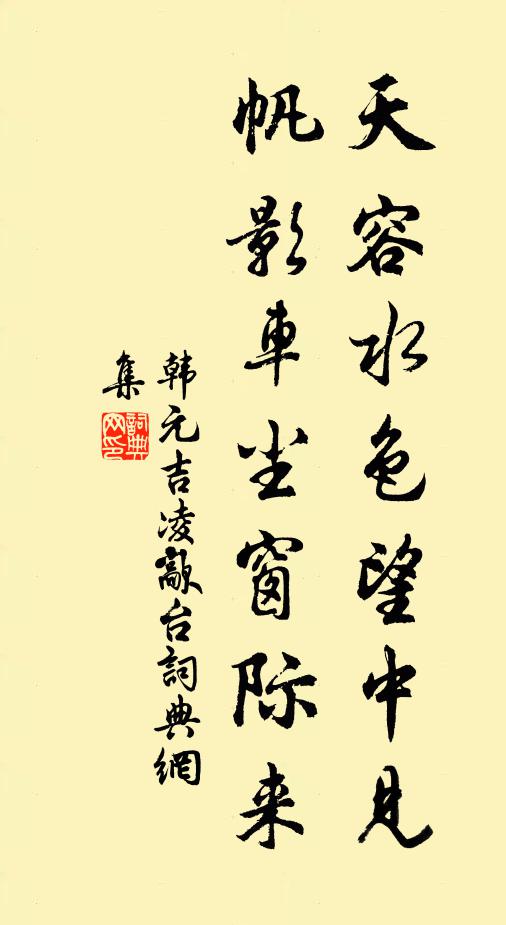 天容水色望中见
帆影車尘窗际来
韩元吉凌歊台詞典網
集
詞典
网印